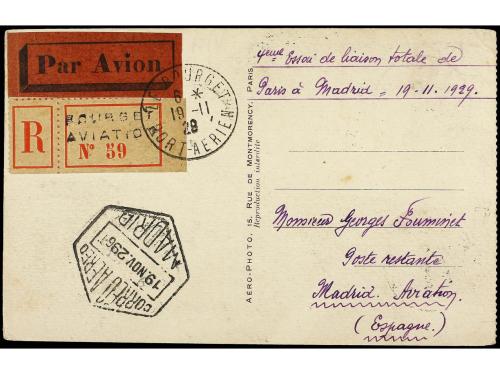 Par Avion
R
BOURGET
AVIATION
Nº 59
LE BOURGET
6 *
19 -11
29
PORT-AERIEN
CORREO AEREO
19 NOV. 29
MADRID
AÉRO-PHOTO, 15, RUE DE MONTMORENCY, PARIS
Reproduction interdite
4eme Essai de liaison totale de
Paris à Madrid = 19-11.1929.
Monsieur Georges Fouminet
Poste restante
Madrid. Aviation.
(Espagne.)